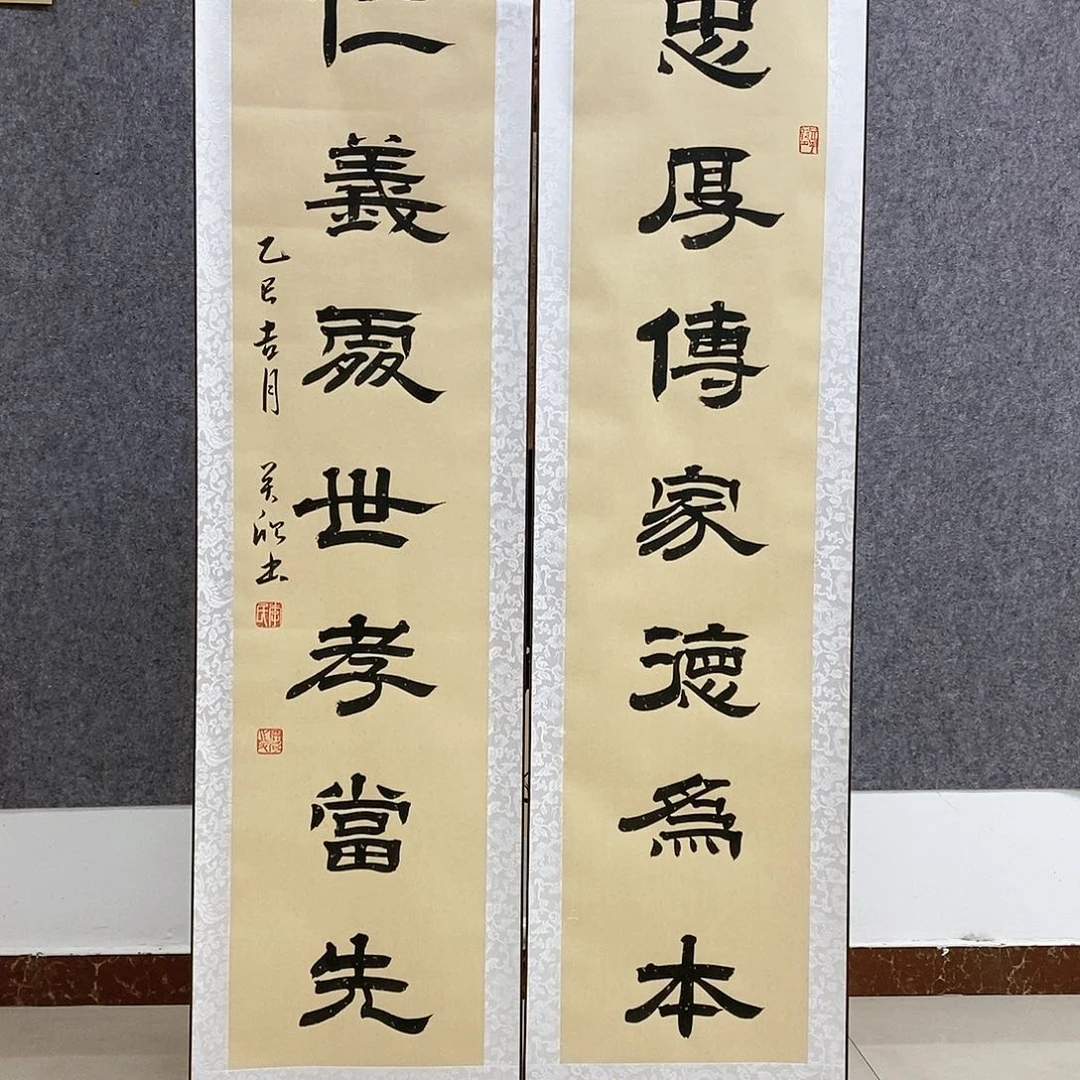 忠厚傳家德為本
仁義處世孝當先
乙巳吉月
書